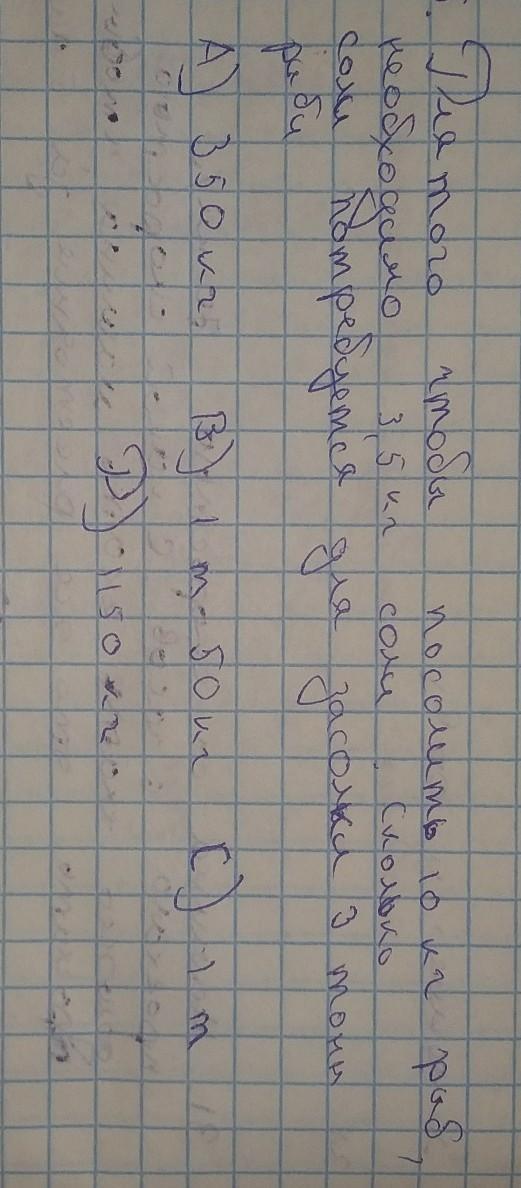 Для того чтобы посолить 10 кг рыб,
необходимо 3,5 кг соли. Сколько
соли потребуется для засолки 3 тонн
рыбы
A) 350 кг B) 1 т 50 кг C) 1 т
D) 1150 кг